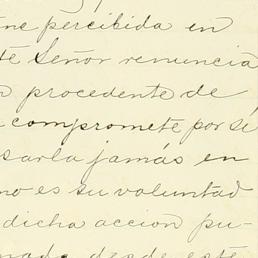 percibida en
Señor renuncia
procedente de
compromete por sí
sarla jamás en
no es su voluntad
dicha accion pu-
desde este